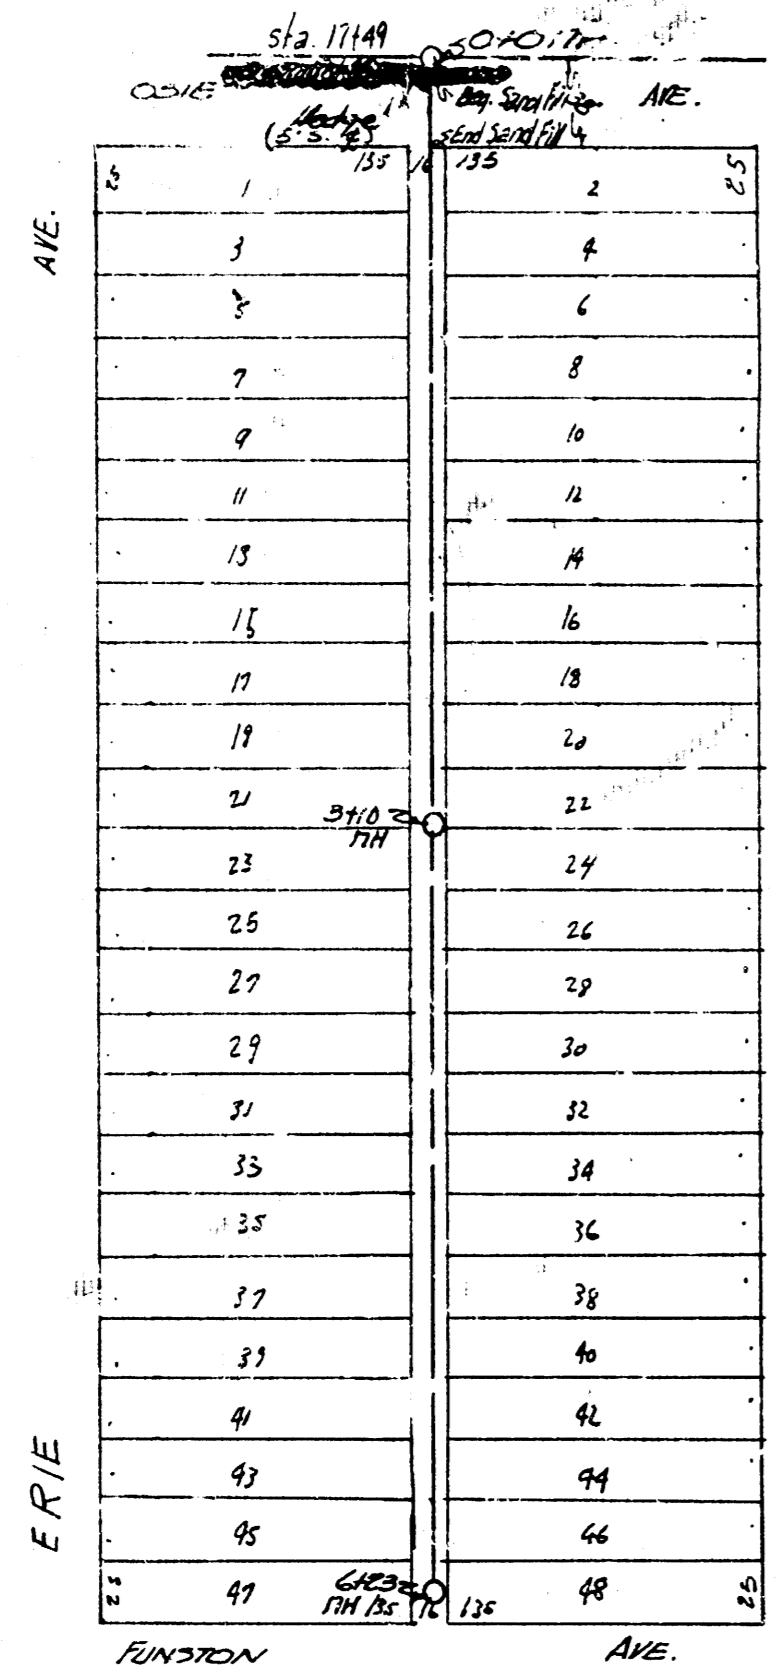 sta. 17+49
OSIE AVE.
Beg. Sand Fill
(S. S. ℄)
End Sand Fill
135 16 135
25 25
AVE.
1 2
3 4
5 6
7 8
9 10
11 12
13 14
15 16
17 18
19 20
21 22
3+10
MH
23 24
25 26
27 28
29 30
31 32
33 34
35 36
37 38
39 40
41 42
43 44
45 46
ERIE
6+23
25 47 48 25
MH 135 16 135
FUNSTON AVE.